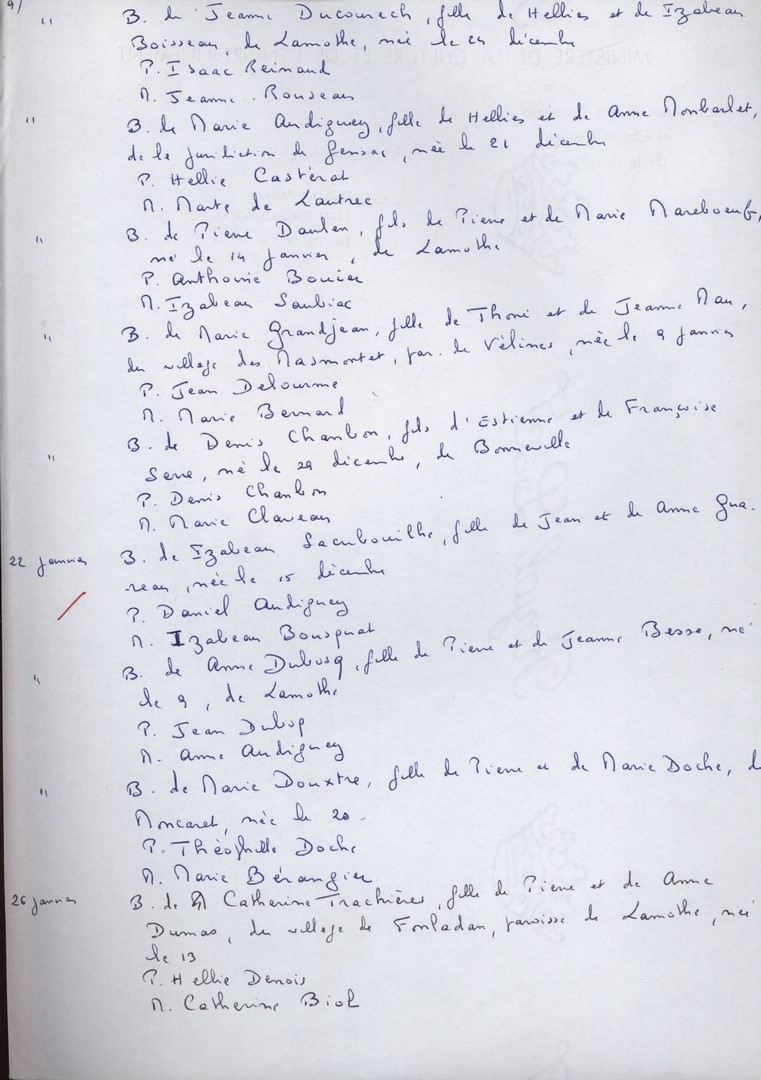 9/
" B. de Jeanne Ducourech, fille de Hellies et de Izabeau
Boisseau, de Lamothe, née le 24 décembre
P. Isaac Reinaud
M. Jeanne Rouseau
" B. de Marie Audiguey, fille de Hellies et de Anne Monbarlet,
de la juridiction de Gensac, née le 21 décembre
P. Hellie Castérat
M. Marte de Lautrec
" B. de Pierre Daulen, fils de Pierre et de Marie Mareboeuf,
né le 14 janvier, de Lamothe
P. Anthonie Bouier
M. Izabeau Saubiac
" B. de Marie Grandjean, fille de Thoni et de Jeanne Nau,
du village des Masmontet, par. de Vélines, née le 9 janvier
P. Jean Delourme
M. Marie Bernard
" B. de Denis Chanbon, fils d'Estienne et de Françoise
Serre, né le 29 décembre, de Bonneville
P. Denis Chanbon
M. Marie Claveau
22 janvier B. de Izabeau Sacubouilhe, fille de Jean et de Anne Gua-
reau, née le 15 décembre
P. Daniel Audiguey
M. Izabeau Bousquat
" B. de Anne Dubosq, fille de Pierre et de Jeanne Besse, né
le 9, de Lamothe
P. Jean Dubosq
M. Anne Audiguey
" B. de Marie Douxtre, fille de Pierre et de Marie Doche, d
Moncaret, née le 20.
P. Théophille Doche
M. Marie Bérangier
26 janvier B. de Catherine Trachières, fille de Pierre et de Anne
Dumas, du village de Fonladan, paroisse de Lamothe, née
le 13
P. Hellie Denois
M. Catherine Biol